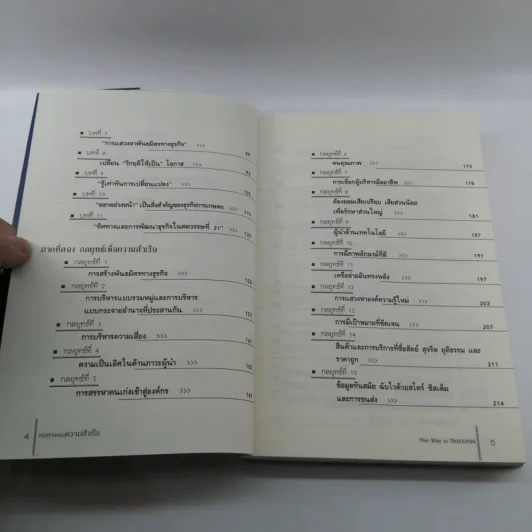 ▪ บทที่ 7
"การแสวงหาพันธมิตรทางธุรกิจ" >>>
▪ บทที่ 8
เปลี่ยน "วิกฤติให้เป็น" โอกาส >>>
▪ บทที่ 9
"รู้เท่าทันการเปลี่ยนแปลง" >>>
▪ บทที่ 10
"ตลาดล่วงหน้า" เป็นสิ่งสำคัญของธุรกิจการเกษตร >>>
▪ บทที่ 11
"ทิศทางและการพัฒนาธุรกิจในศตวรรษที่ 21" >>>
ภาคที่สอง กลยุทธ์เพื่อความสำเร็จ
▪ กลยุทธ์ที่ 1
การสร้างพันธมิตรทางธุรกิจ >>>
▪ กลยุทธ์ที่ 2
การบริหารแบบรวมหมู่และการบริหาร
แบบกระจายอำนาจที่ประสานกัน >>>
▪ กลยุทธ์ที่ 3
การบริหารความเสี่ยง >>>
▪ กลยุทธ์ที่ 4
ความเป็นเลิศในด้านภาวะผู้นำ >>>
▪ กลยุทธ์ที่ 5
การสรรหาคนเก่งเข้าสู่องค์กร >>>
4 หนทางแห่งความสำเร็จ
▪ กลยุทธ์ที่ 6
คนคุณภาพ >>> 173
▪ กลยุทธ์ที่ 7
การเลือกผู้บริหารมืออาชีพ >>> 178
▪ กลยุทธ์ที่ 8
ต้องยอมเสียเปรียบ เสียส่วนน้อย
เพื่อรักษาส่วนใหญ่ >>> 181
▪ กลยุทธ์ที่ 9
ผู้นำด้านเทคโนโลยี >>> 187
▪ กลยุทธ์ที่ 10
การมีภาพลักษณ์ที่ดี >>> 191
▪ กลยุทธ์ที่ 11
เครือข่ายอันทรงพลัง >>> 197
▪ กลยุทธ์ที่ 12
การแสวงหาองค์ความรู้ใหม่ >>> 202
▪ กลยุทธ์ที่ 13
การมีเป้าหมายที่ชัดเจน >>> 207
▪ กลยุทธ์ที่ 14
สินค้าและการบริการที่ซื่อสัตย์ สุจริต ยุติธรรม และ
ราคาถูก >>> 211
▪ กลยุทธ์ที่ 15
ข้อมูลทันสมัย ฉับไวด้วยสโตร์ ซิสเต็ม
และการขนส่ง >>> 214
The Way to Success 5